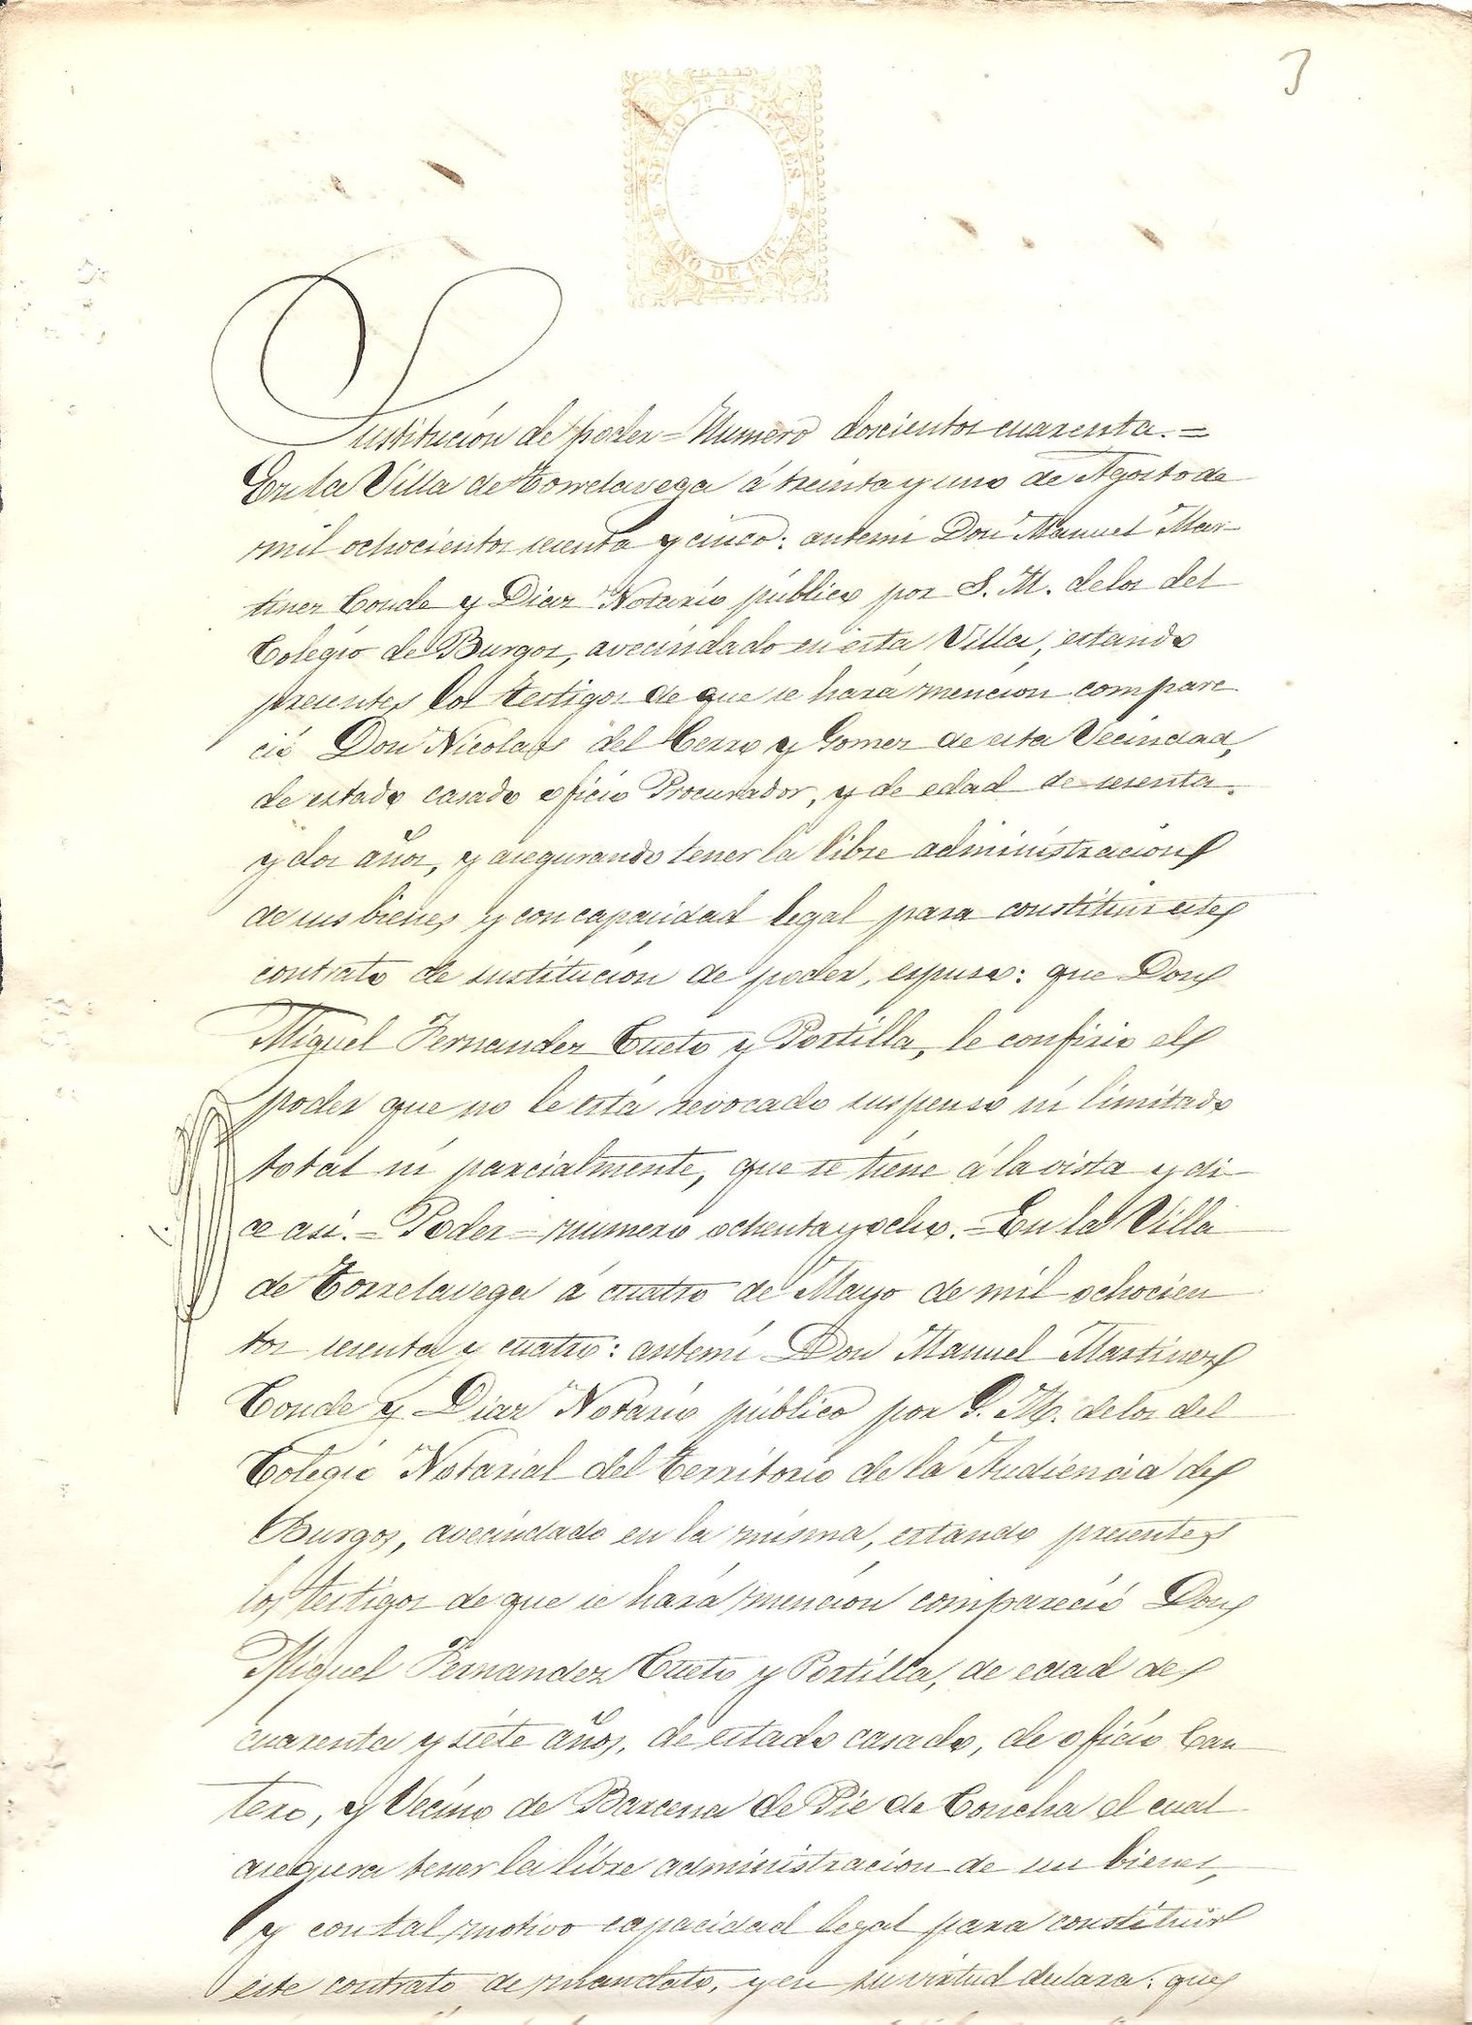 3
SELLO 7º 8 REALES
AÑO DE 1865
Sustitución de poder = Numero doscientos cuarenta. =
En la Villa de Torrelavega á treinta y uno de Agosto de
mil ochocientos sesenta y cinco: antemi Don Manuel Mar-
tinez Conde y Diaz Notario público por S. M. delos del
Colegio de Burgos, avecindado en esta Villa, estando
presentes los testigos de que se hará mencion compare
ció Don Nicolas del Cerro y Gomez de esta Vecindad,
de estado casado oficio Procurador, y de edad de sesenta
y dos años, y asegurando tener la libre administracion
de sus bienes y con capacidad legal para constituir este
contrato de sustitución de poder, espuso: que Don
Miguel Fernandez Cueto y Portilla, le confirio el
poder que no le está revocado suspenso ni limitado
total ni parcialmente, que se tiene á la vista y di-
ce asi. = Poder = numero ochenta y ocho. = En la Villa
de Torrelavega á cuatro de Mayo de mil ochocien
tos sesenta y cuatro: antemi Don Manuel Martinez
Conde y Diaz Notario público por S. M. delos del
Colegio Notarial del territorio de la Audiencia de
Burgos, avecindado en la misma, estando presentes
los testigos de que se hará mención compareció Don
Miguel Fernandez Cueto y Portilla, de edad de
cuarenta y siete años, de estado casado, de oficio Can
tero, y Vecino de Barcena de Pie de Concha el cual
asegura tener la libre administracion de sus bienes,
y con tal motivo capacidad legal para constituir
este contrato de mandato, y en su virtud declara: que